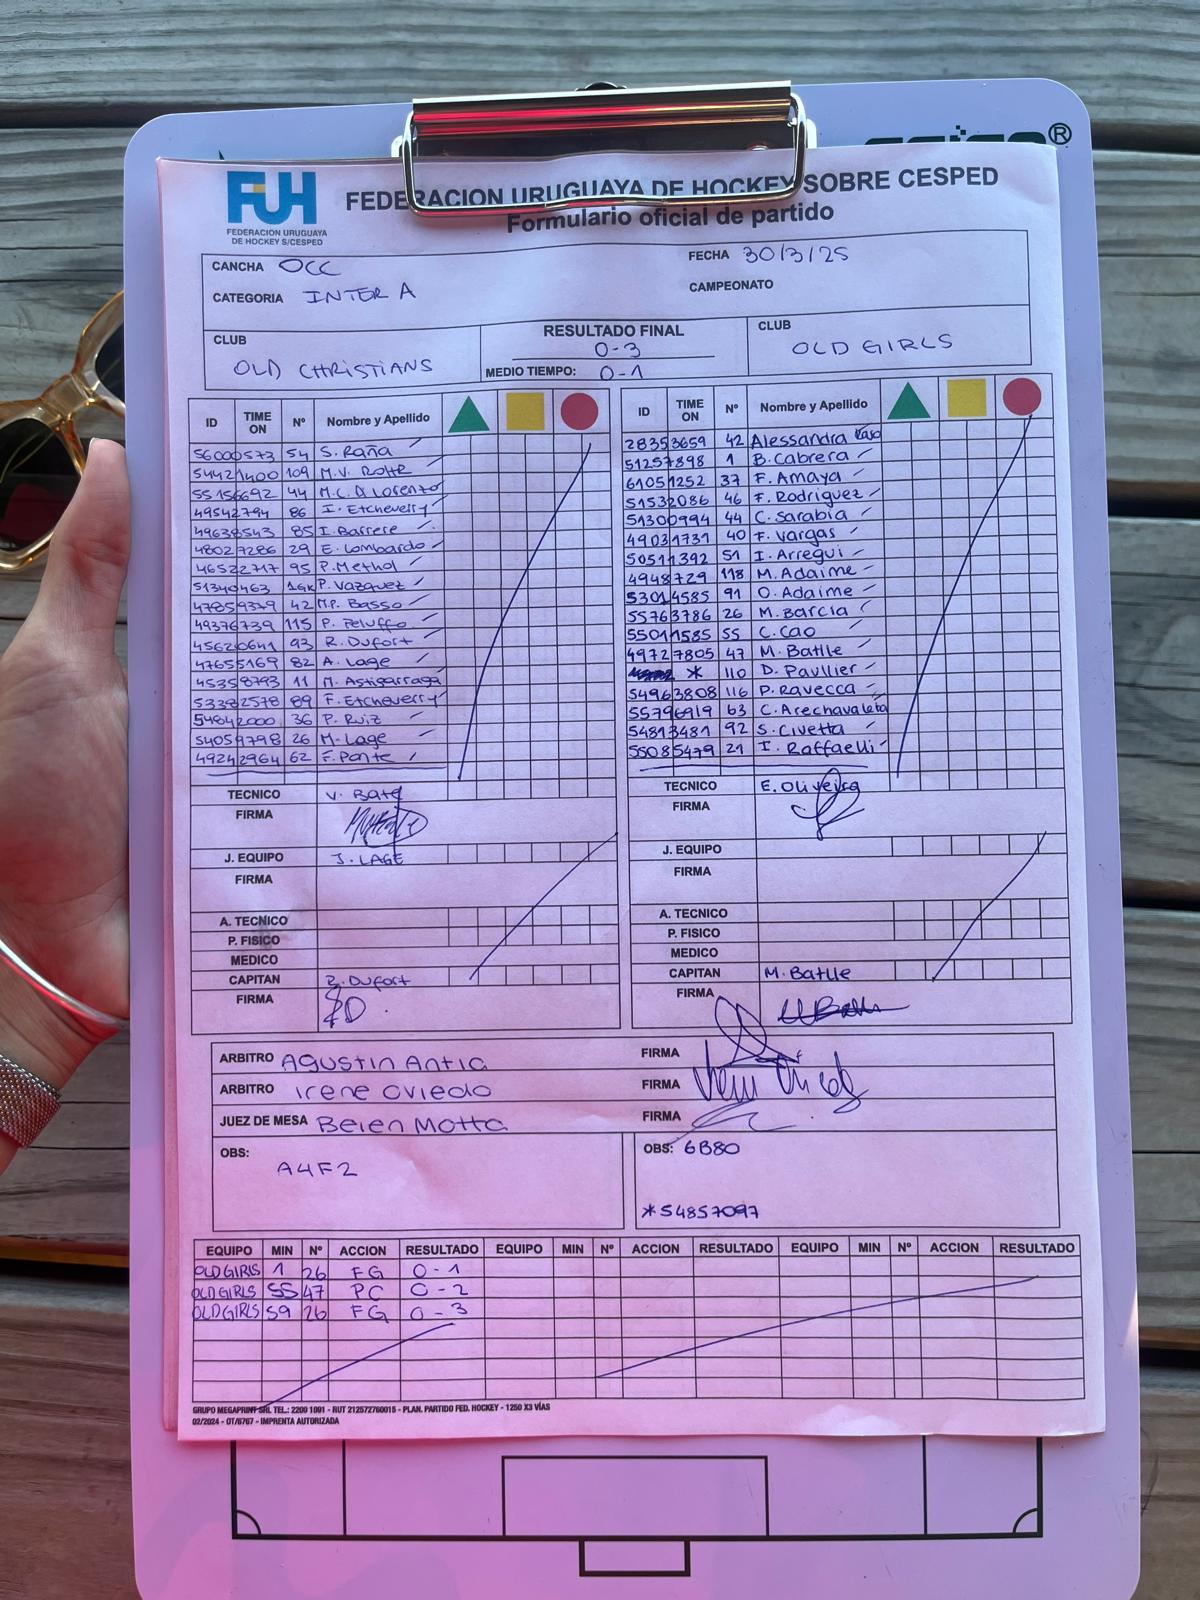 FUH
FEDERACION URUGUAYA
DE HOCKEY S/CESPED
FEDERACION URUGUAYA DE HOCKEY SOBRE CESPED
Formulario oficial de partido
CANCHA OCC
FECHA 30/3/25
CATEGORIA INTER A
CAMPEONATO
CLUB OLD CHRISTIANS
RESULTADO FINAL
0-3
MEDIO TIEMPO: 0-1
CLUB OLD GIRLS
ID TIME ON Nº Nombre y Apellido
56000573 54 S. Raña
54421400 109 M.V. Rotte
55156692 44 M.C. D Lorenzo
49542794 86 I. Etcheverry
49638543 85 I. Barrere
48027286 29 E. Lombardo
46522717 95 P. Methol
51340463 1GK P. Vazquez
47859379 42 M.P. Basso
49376739 115 P. Peluffo
45620641 93 R. Dufort
47655169 82 A. Lage
45358793 11 M. Astigarraga
53382578 89 F. Etcheverry
54842000 36 P. Ruiz
54059798 26 M. Lage
49242964 62 F. Ponte
TECNICO V. Bate
FIRMA
J. EQUIPO J. LAGE
FIRMA
A. TECNICO
P. FISICO
MEDICO
CAPITAN R. Dufort
FIRMA RD
ID TIME ON Nº Nombre y Apellido
28353659 42 Alessandra
51257898 1 B. Cabrera
61051252 37 F. Amaya
51532086 46 F. Rodriguez
51300994 44 C. Sarabia
49031731 40 F. Vargas
50511392 51 I. Arregui
4948729 118 M. Adaime
53014585 91 O. Adaime
55763786 26 M. Barcia
55011585 55 C. Cao
49727805 47 M. Batlle
* 110 D. Paullier
54963808 116 P. Ravecca
55796919 63 C. Arechavaleta
54813481 92 S. Civetta
55085479 21 I. Raffaelli
TECNICO E. Oliveira
FIRMA
J. EQUIPO
FIRMA
A. TECNICO
P. FISICO
MEDICO
CAPITAN M. Batlle
FIRMA
ARBITRO Agustin Antia FIRMA
ARBITRO Irene Oviedo FIRMA
JUEZ DE MESA Belen Motta FIRMA
OBS: A4F2
OBS: 6B80
*54857097
EQUIPO MIN Nº ACCION RESULTADO EQUIPO MIN Nº ACCION RESULTADO EQUIPO MIN Nº ACCION RESULTADO
OLD GIRLS 1 26 FG 0-1
OLD GIRLS 55 47 PC 0-2
OLD GIRLS 59 26 FG 0-3
GRUPO MEGAPRINT SRL TEL.: 2200 1091 - RUT 212572760015 - PLAN. PARTIDO FED. HOCKEY - 1250 X3 VÍAS
02/2024 - OT/6767 - IMPRENTA AUTORIZADA